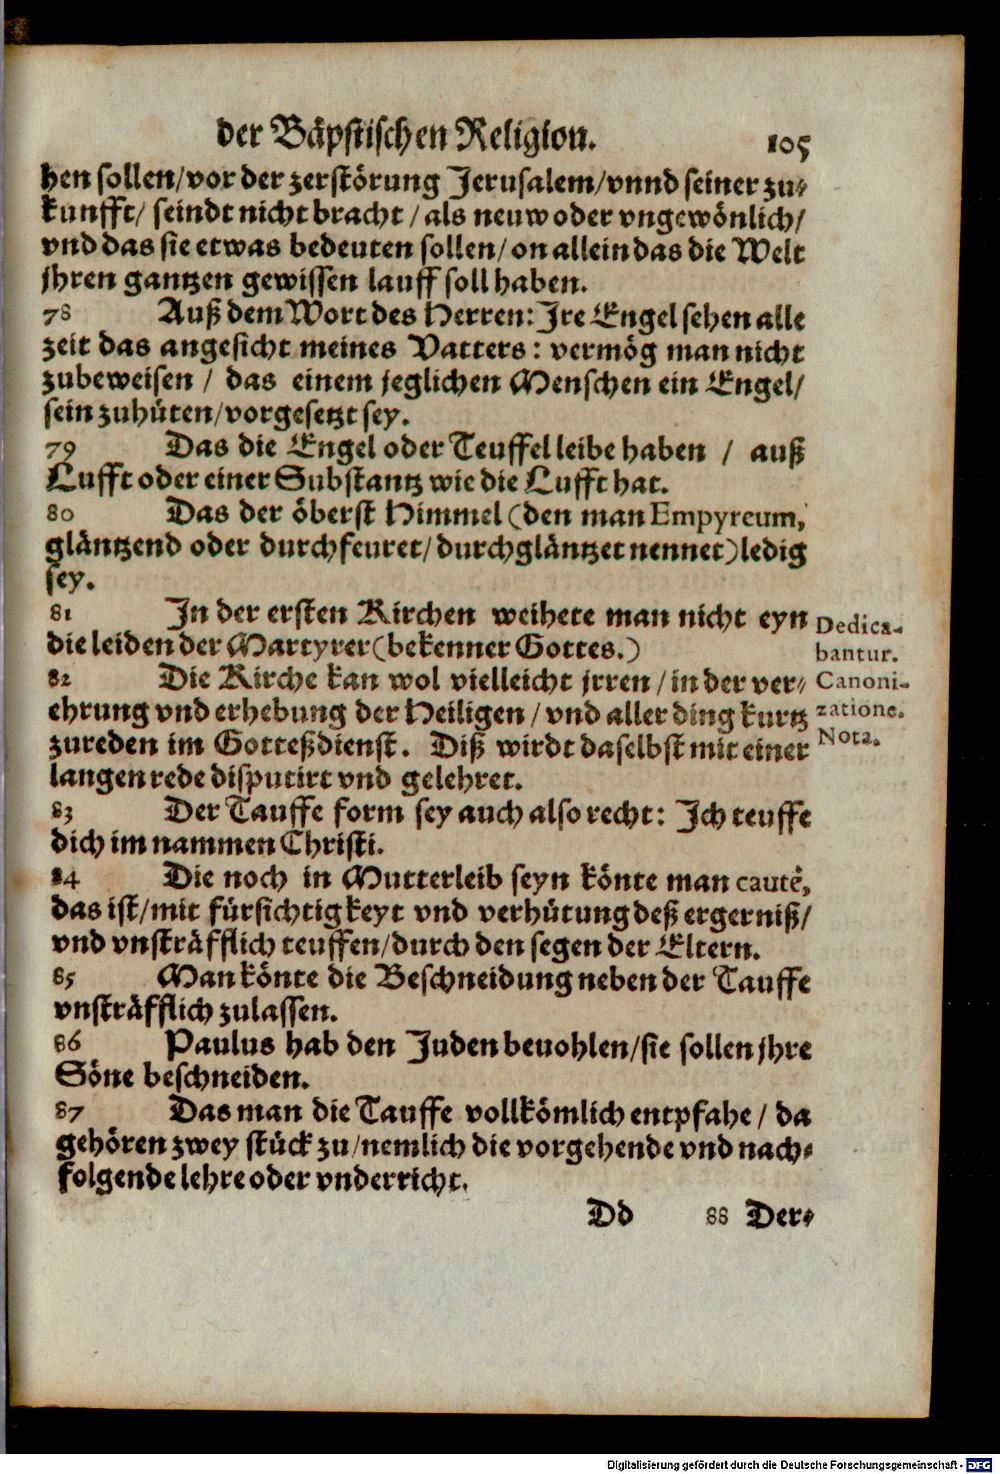 der Bäpstischen Religion. 105
hen sollen/vor der zerstörung Jerusalem/vnnd seiner zu-
kunfft/ seindt nicht bracht / als neuw oder vngewönlich/
vnd das sie etwas bedeuten sollen/ on allein das die Welt
jhren gantzen gewissen lauff soll haben.
78 Auß dem Wort des Herren: Ire Engel sehen alle
zeit das angesicht meines Vatters: vermög man nicht
zubeweisen / das einem jeglichen Menschen ein Engel/
sein zuhüten/vorgesetzt sey.
79 Das die Engel oder Teuffel leibe haben / auß
Lufft oder einer Substantz wie die Lufft hat.
80 Das der öberst Himmel (den man Empyreum,
gläntzend oder durchfeuret/durchgläntzet nennet) ledig
sey.
81 In der ersten Kirchen weihete man nicht eyn
Dedica-
die leiden der Martyrer (bekenner Gottes.)
bantur.
82 Die Kirche kan wol vielleicht jrren / in der ver-
Canoni-
ehrung vnd erhebung der Heiligen / vnd aller ding kurtz
zatione.
zureden im Gotteßdienst. Diß wirdt daselbst mit einer
Nota.
langen rede disputirt vnd gelehret.
83 Der Tauffe form sey auch also recht: Ich teuffe
dich im nammen Christi.
84 Die noch in Mutterleib seyn könte man cautè,
das ist/mit fürsichtigkeyt vnd verhütung deß ergerniß/
vnd vnsträfflich teuffen/durch den segen der Eltern.
85 Man könte die Beschneidung neben der Tauffe
vnsträfflich zulassen.
86 Paulus hab den Juden beuohlen/sie sollen jhre
Söne beschneiden.
87 Das man die Tauffe vollkömlich entpfahe / da
gehören zwey stück zu/nemlich die vorgehende vnd nach-
folgende lehre oder vnderricht.
Dd 88 Der-
Digitalisierung gefördert durch die Deutsche Forschungsgemeinschaft - DFG